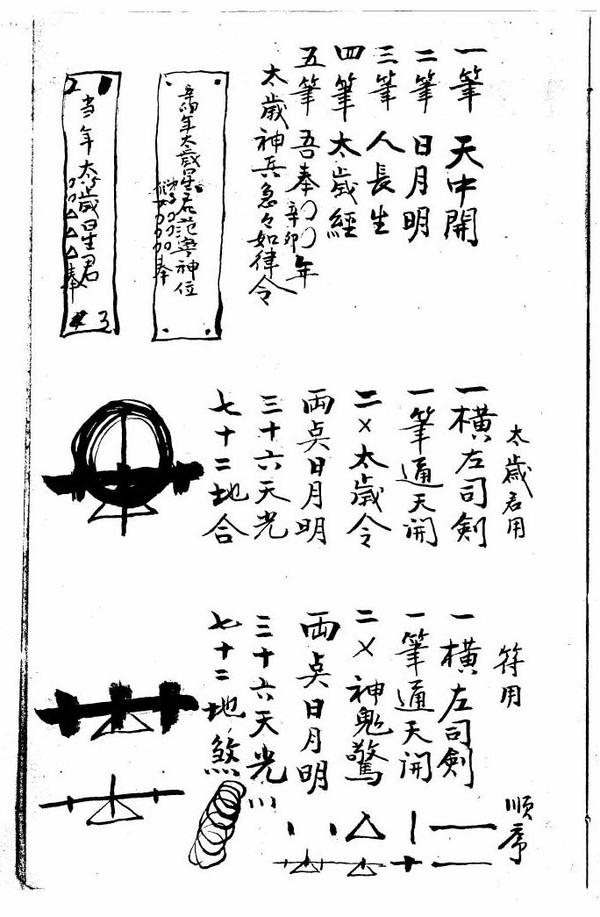 一筆 天中開
二筆 日月明
三筆 人長生
四筆 太歲經
五筆 吾奉〇〇年
辛卯
太歲神兵急々如律令
辛卯年太歲星君范寧神位
〇〇〇〇奉
当年太歲星君
〇〇△△△奉
太歲君用
一橫左司劍
一筆通天開
二×太歲令
両点日月明
三十六天光
七十二地合
符用
一橫左司劍
一筆通天開
二×神鬼驚
両点日月明
三十六天光
七十二地煞
順序